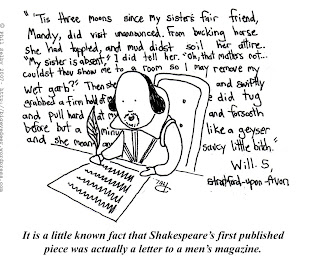 "'Tis three moons since my sister's fair friend,
Mandy, did visit unannounced. From bucking horse
she had toppled, and mud didst soil her attire.
"My sister is absent," I did tell her. "Oh, that matters not...
couldst thou show me to a room so I may remove my
wet garb?" Then she and swiftly
grabbed a firm hold of did tug
and pull hard at my and forsooth
before but a minu like a geyser
and she mean saucy little bitch."
Will S,
Stratford-upon-Avon
It is a little known fact that Shakespeare's first published
piece was actually a letter to a men's magazine.